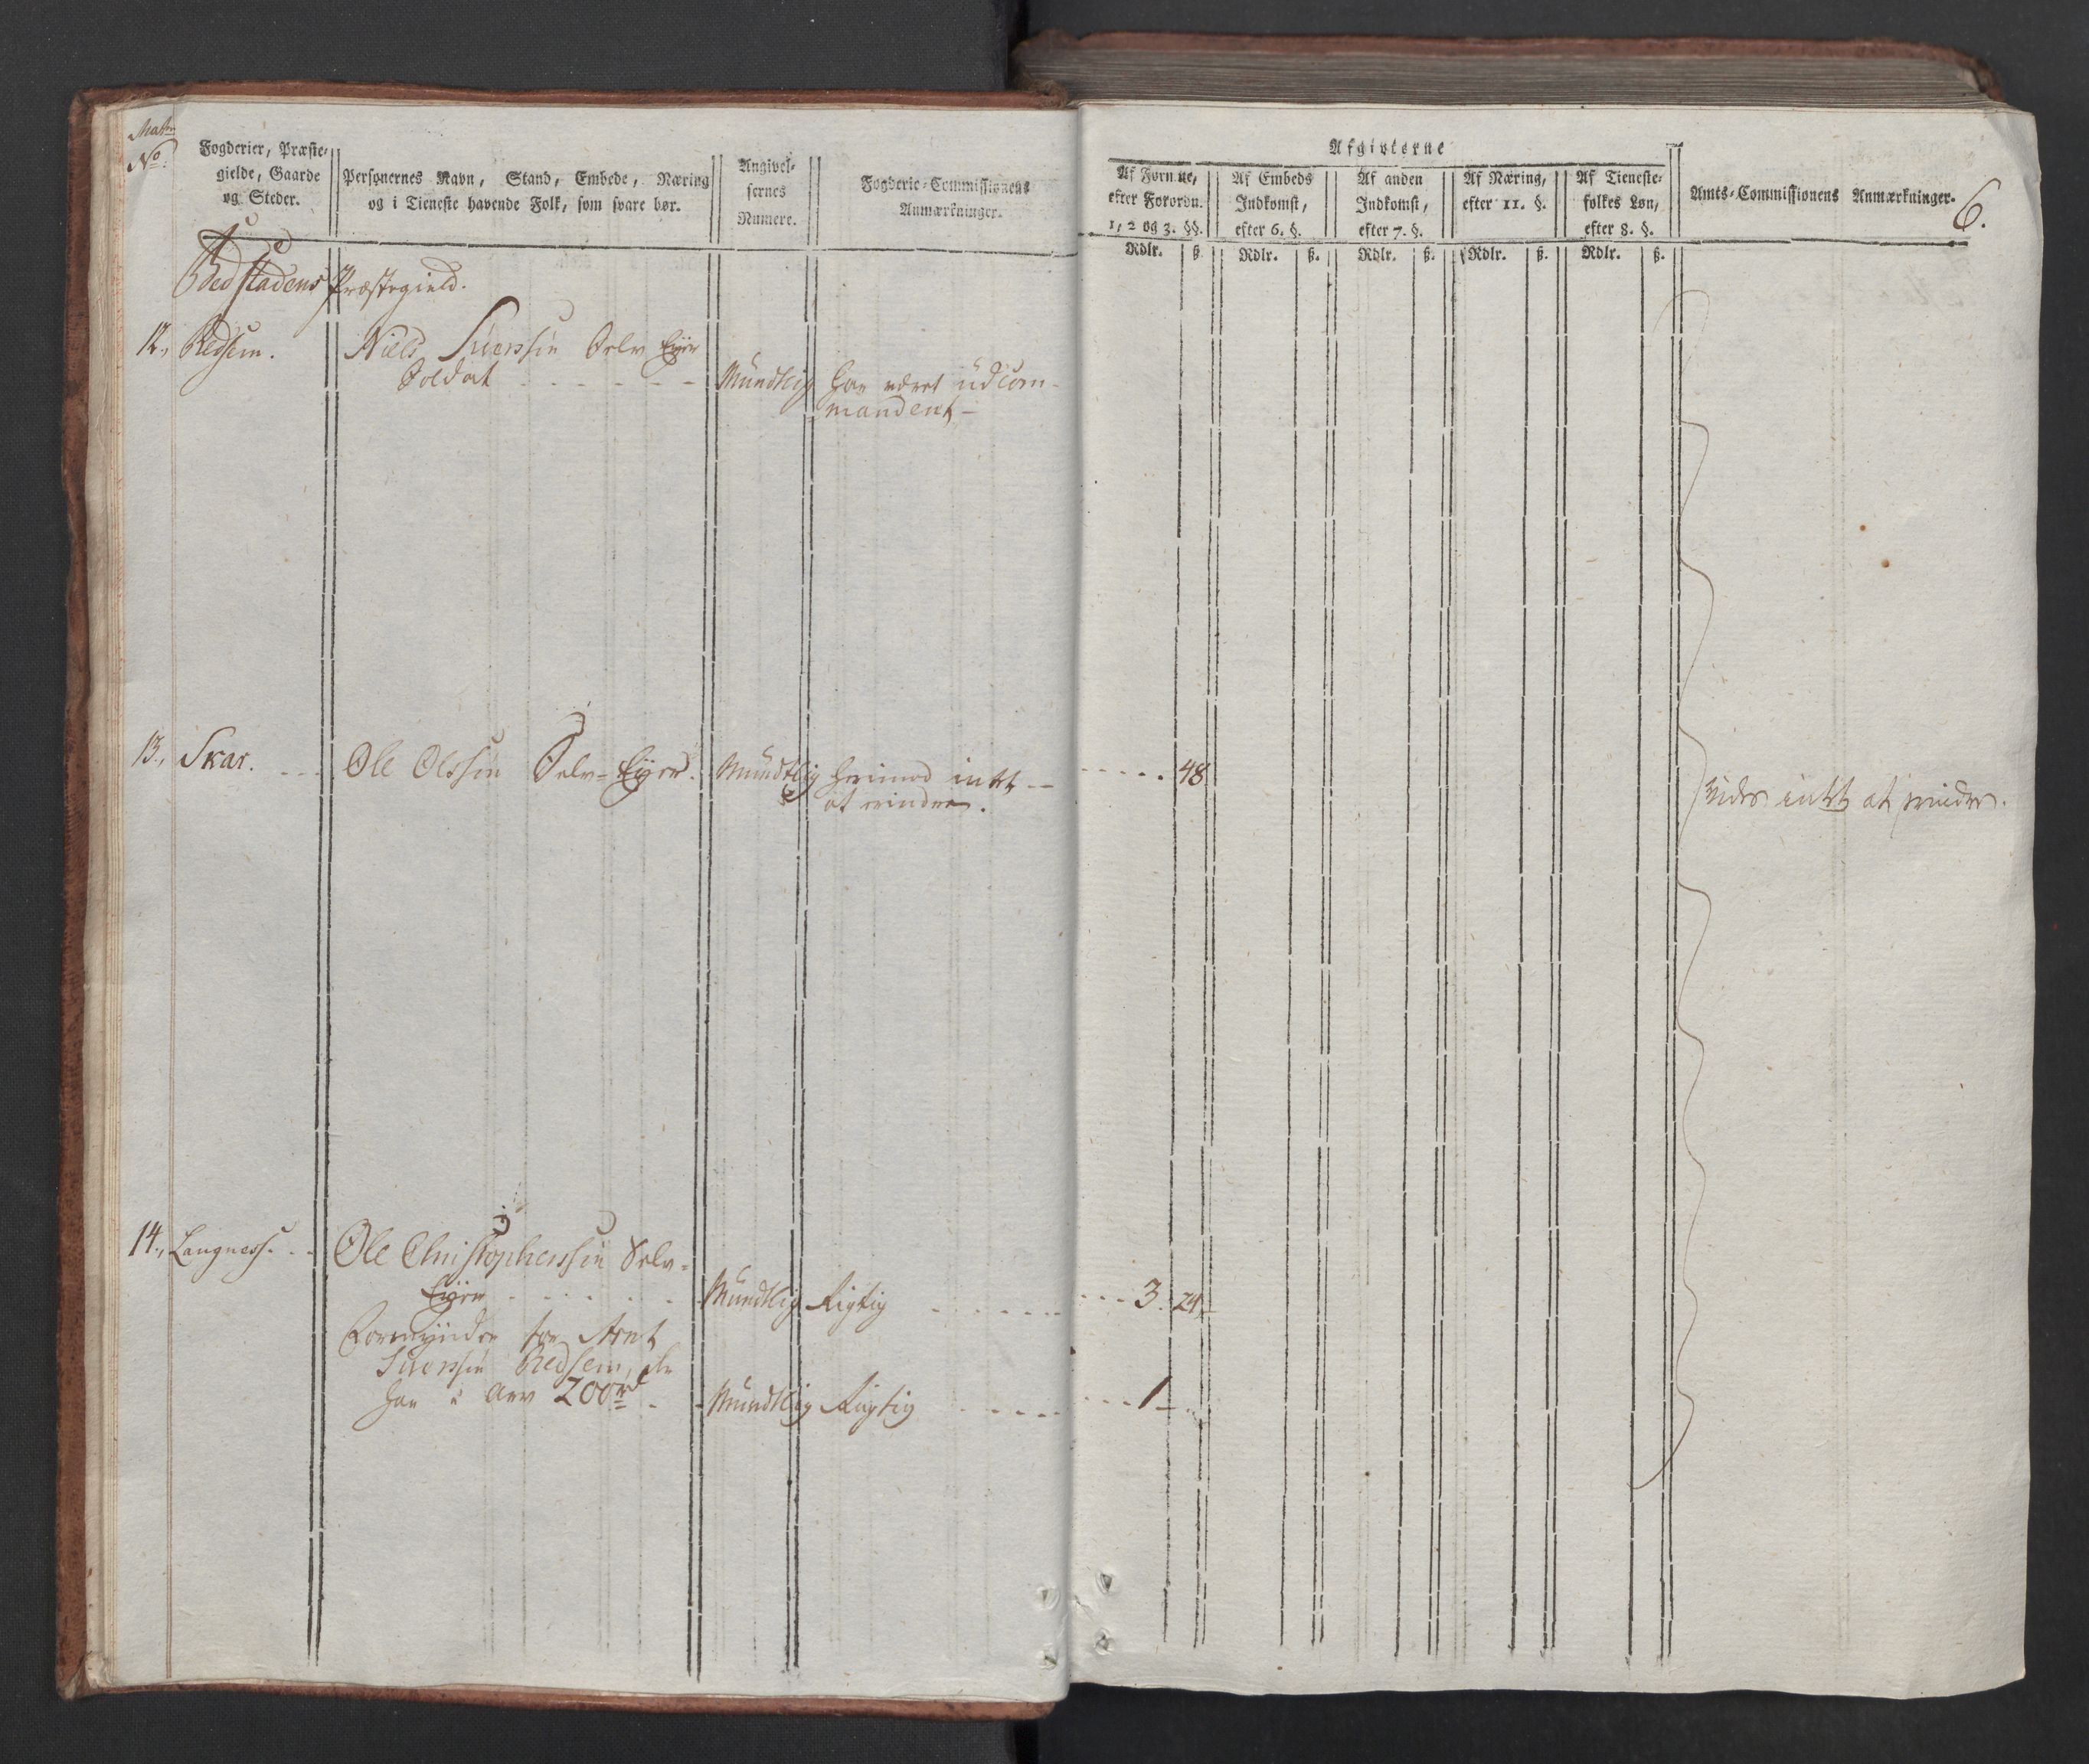 Matr
No.
Fogderier, Præste-
gielde, Gaarde
og Steder.
Personernes Navn, Stand, Embede, Næring
og i Tieneste havende Folk, som svare bør.
Angivel-
sernes
Numere.
Fogderie-Commissionens
Anmærkninger.
Afgivterne
Af Formue,
efter Forordn.
1, 2 og 3. §§.
Af Embeds
Indkomst,
efter 6. §.
Af anden
Indkomst,
efter 7. §.
Af Næring,
efter 11. §.
Af Tieneste-
folkes Løn,
efter 8. §.
Amts-Commissionens Anmærkninger.
6.
Rdlr. ß. Rdlr. ß. Rdlr. ß. Rdlr. ß. Rdlr. ß.
Bedstadens Præstegield.
12., Redsem. Niels Siversen Selv Eyer
Soldat - - - - - - - Mündtlig har været üdcom-
mandert -
13., Skar. - - Ole Olssen Selv-Eyer. Mündtlig herimod intet -- - - - - . 48
at erindre.
vides intet at erindre.
14., Langness. - - Ole Christophersen Selv-
Eyer - - - - - - Mündtlig Rigtig - - - - - - - - - 3. 24.
Formynder for Arnt
Siversen Redsem, der
har i Arv 200 rd - - Mündtlig Rigtig - - - - - - - 1 - "